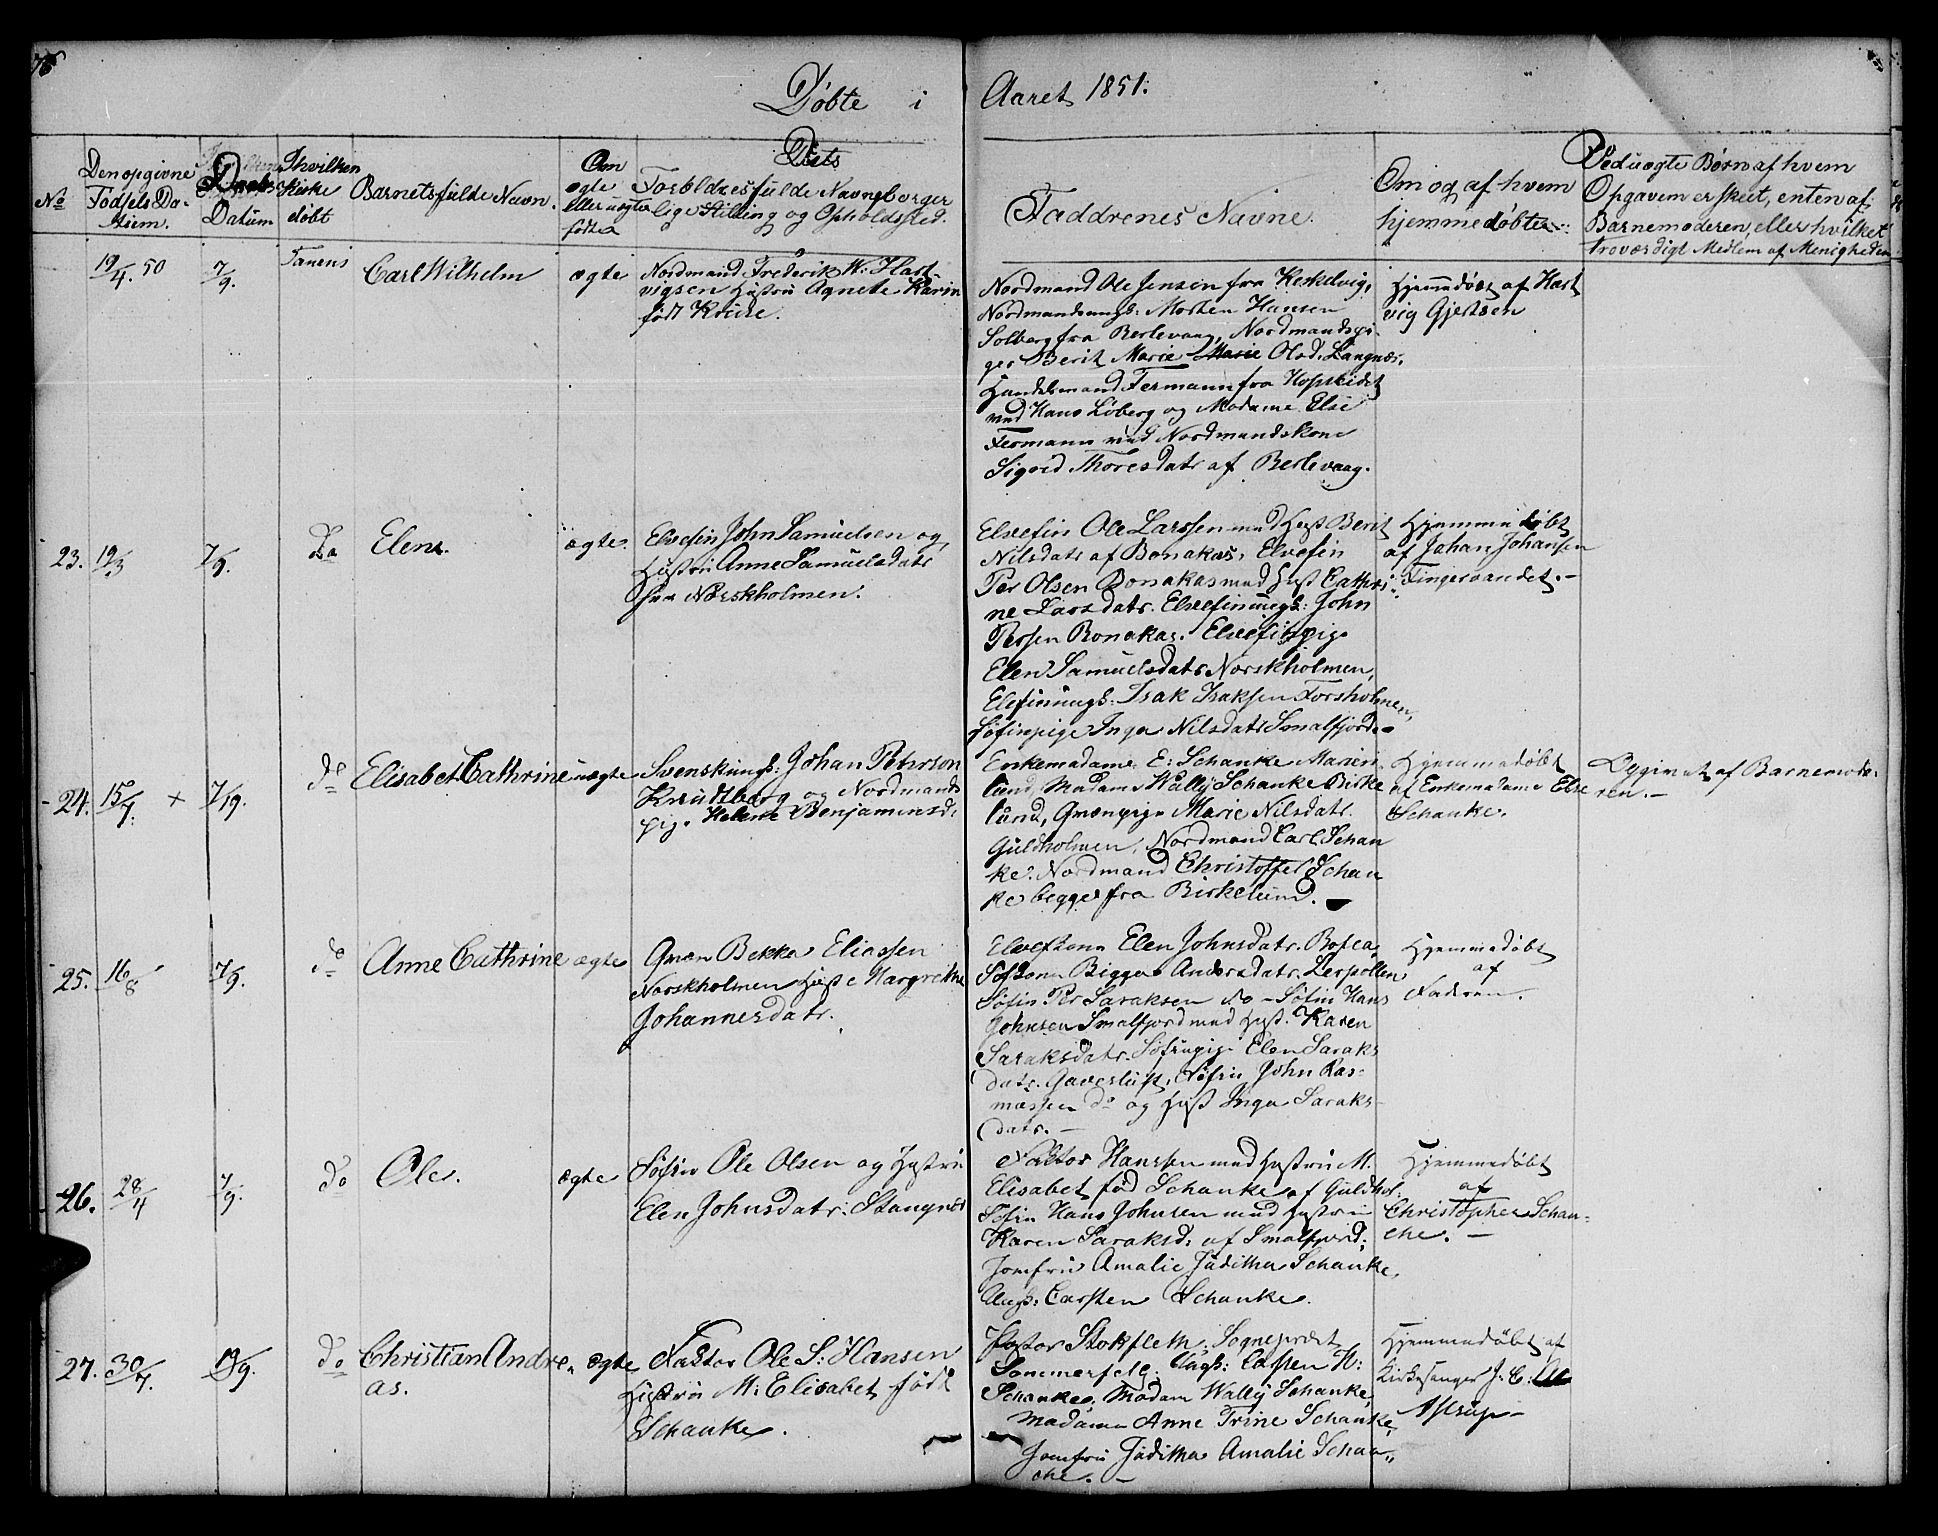 76
Døbte i Aaret 1851.
No
Den opgivne Fødsels Datum.
Daabs Datum
I hvilken Kirke døbt
Barnets fulde Navn.
Om ægte eller uægte født
Dets Forældres fulde Navne, borgerlige Stilling og Opholdssted.
Faddrenes Navne.
Om og af hvem hjemmedøbte
Ved uægte Børn af hvem Opgaven er skeet, enten af Barnemoderen, eller hvilket troværdigt Medlem af Menigheden
19/4. 50
7/9.
Tanens
Carl Wilhelm
ægte
Nordmand Frederik W. Hart-
vigsen Hustru Agnete Karin
født Kruse.
Nordmand Ole Jensen fra Keskelvig,
Nordmandsungk: Morten Hansen
Solberg fra Berlevaag, Nordmandspi-
ge Berit Marie Marie Olsd. Langnæs,
Handelsmand Fermann fra Hopseidet
med Hans Løberg og Madame Else
Fermann med Nordmandskone
Sigrid Thoresdatr af Berlevaag.
Hjemmdøbt af Hart
vig Gjertsen
23.
19/3
7/9.
Do
Elen.
ægte.
Elvefin John Samuelsen og
Hustru Anne Samuelsdatr
fra Norskholmen.
Elvefin Ole Larssen med Hust Berit
Nilsdatr af Bonakas, Elvefin
Per Olsen Bonakas med Hust Cathri-
ne Larsdatr. Elvefinungk: John
Persen Bonakas. Elvefinpige
Elen Samuelsdatr Norskholmen,
Elefinungk: Isak Isaksen Forsholmen,
Søfinpige Inga Nilsdatr Smalfjord.
Hjemmedøbt
af Johan Johansen
Fingervandet.-
24.
15/4.
+
7/9.
do
Elisabet Cathrine
uægte
Svenskungk: Johan Peterson
Krudtberg og Nordmands
pige Helene Benjaminsd.
Enkemadame E: Schanke Marien-
lund, Madame Wally Schanke Birke
lund, Qvænpige Marie Nilsdatr.
Guldholmen, Nordmand Carl Schan
ke. Nordmand Christoffel Schan
ke begge fra Birkelund.
Hjemmedøbt
af Enkemadame Else
Schanke.
Opgivet af Barnemode-
ren.-
25.
16/8
7/9.
do
Anne Cathrine
ægte
Qvæn Bekka Eliassen
Norskholmen Hust Margrethe
Johannesdatr.
Elvefkone Elen Johnsdatr.
Søfkone Bigga Andersdatr. Lerpollen
Søfin Per Saraksen do - Søfin Hans
Johnsen Smalfjord med Hust. Karen
Saraksdatr. Søfinpige Elen Saraks
datr. Søfin John Ras-
massen do og Hust Inga Saraks-
datr.-
Hjemmedøbt
af
Faderen.
26.
28/4
7/9.
do
Ole.
ægte
Søfin Ole Olsen og Hustru
Elen Johnsdatr. Stangnæs
Factor Hanssen med Hustru M.
Elisabet fød Schanke af Guldhol.
Søfin Hans Johnsen med Hustru
Karen Saraksd: af Smalfjord,
Jomfru Amalie Juditha Schanke,
Ungk: Carsten Schanke.
Hjemmedøbt
af
Christopher Schan-
che.-
27.
30/7.
19/9.
do
Christian Andre-
as.
ægte
Factor Ole S: Hansen
Hustru M: Elisabet født
Schanke.
Pastor Stokfleth, Sognepræst
Sommerfelt. Ungk: Casten H:
Schanke, Madam Wally Schanke,
Madame Anne Trine Schanke,
Jomfru Juditha Amalie Schan-
che.-
Hjemmedøbt af
Kirkesanger J: C:
Astrup-